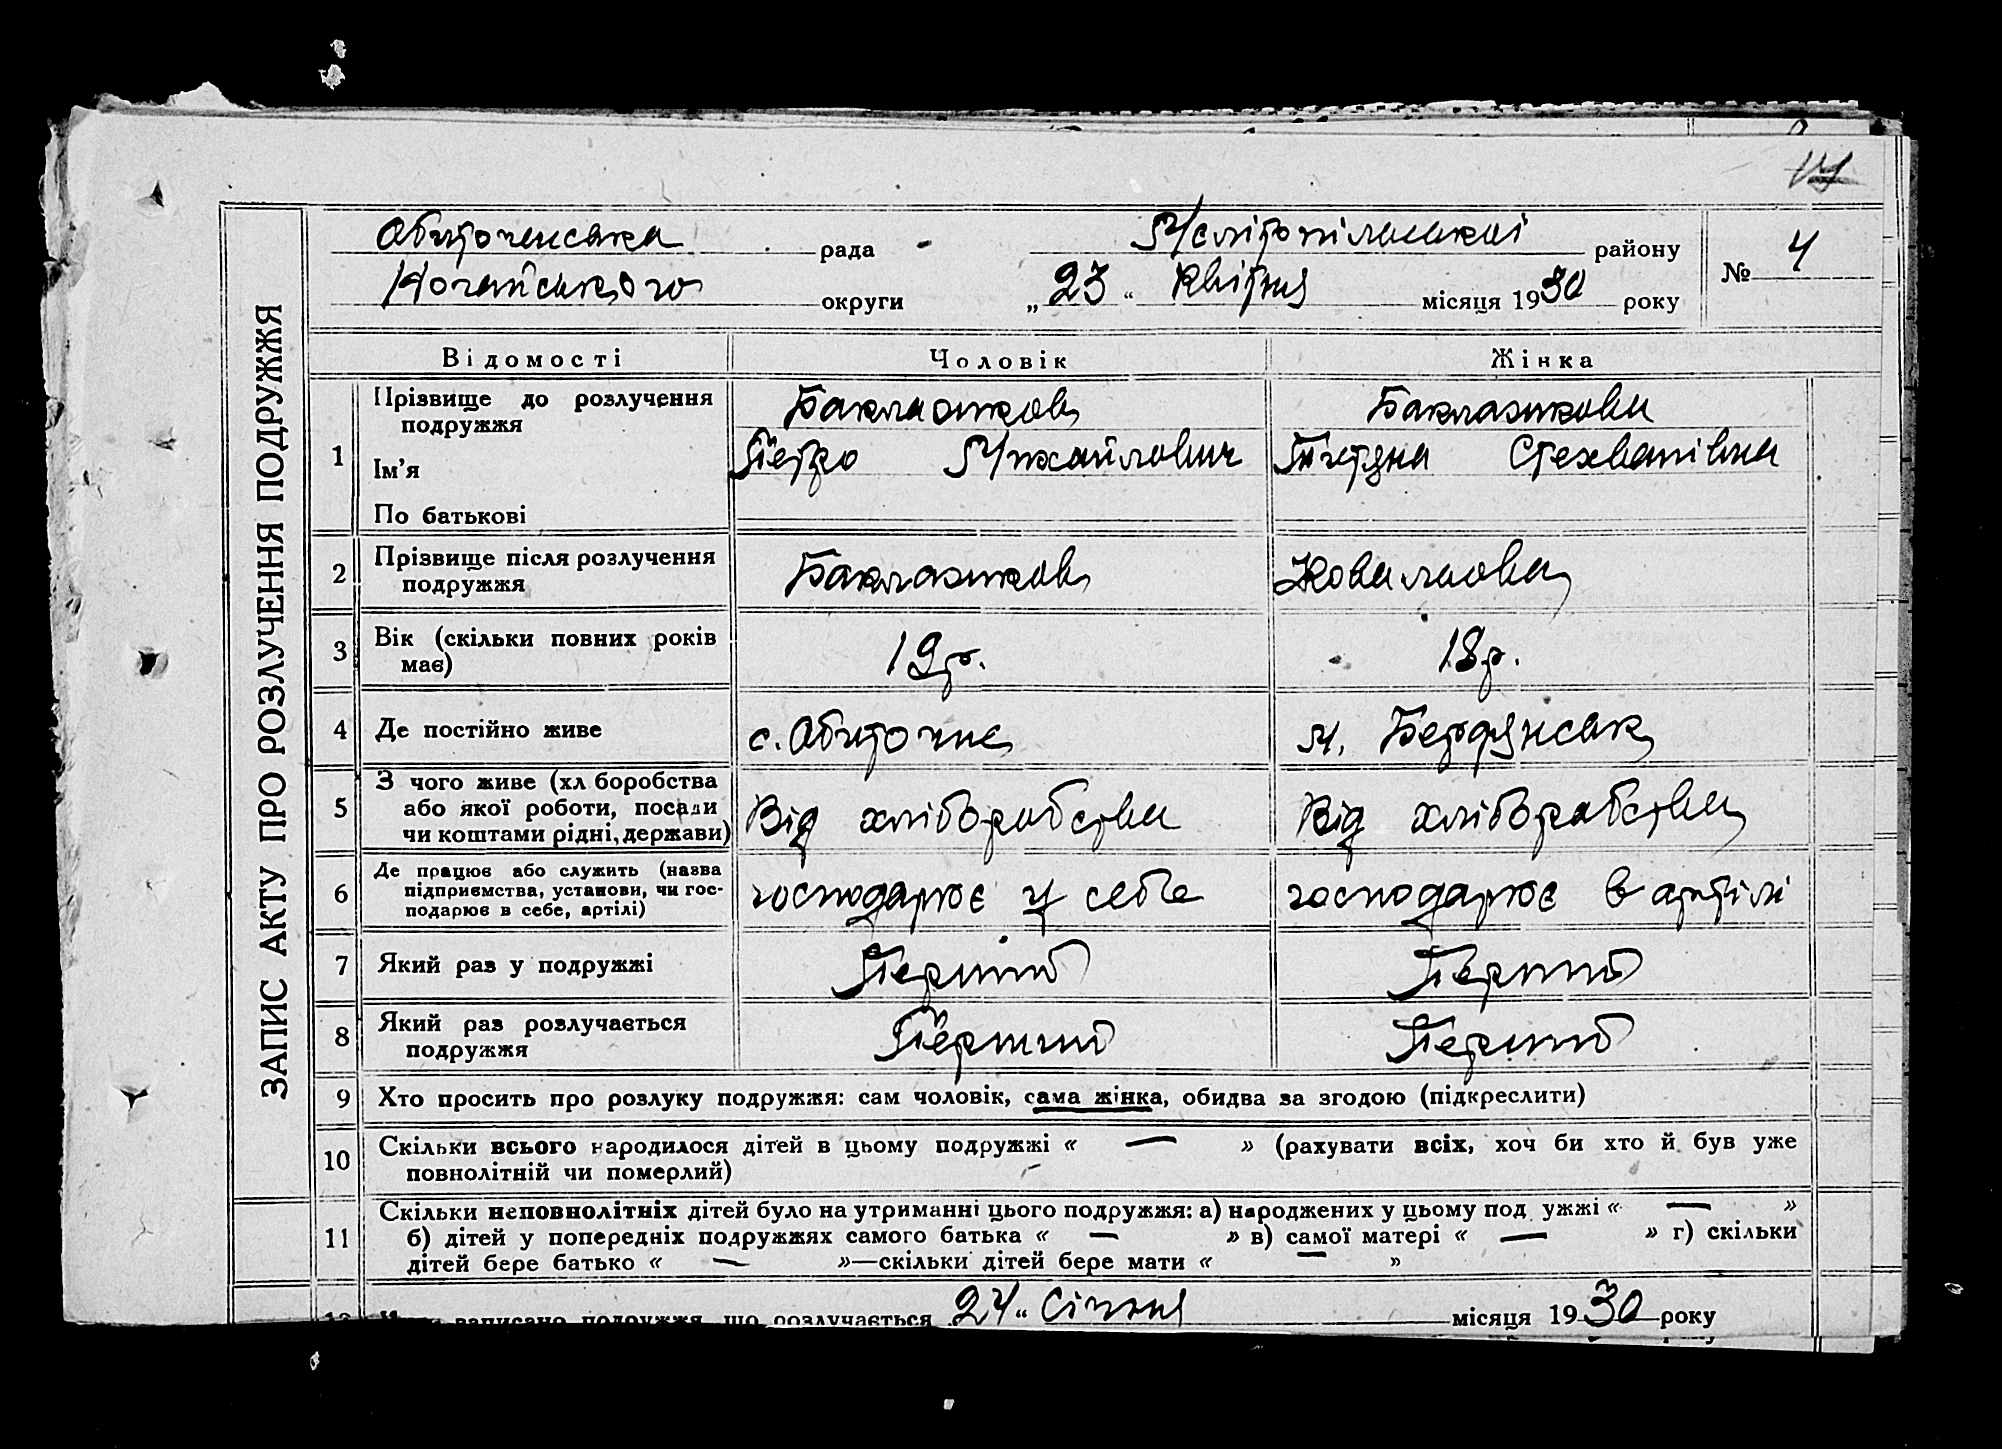 ЗАПИС АКТУ ПРО РОЗЛУЧЕННЯ ПОДРУЖЖЯ
Обиточенська рада Мелітопільської району № 4
Ногайського округи „23“ квітня місяця 1930 року
Відомості Чоловік Жінка
1 Прізвище до розлучення подружжя Баклажков Баклажкова
Ім’я Петро Михайлович Тетяна Стехванівна
По батькові
2 Прізвище після розлучення подружжя Баклажков Ковальова
3 Вік (скільки повних років має) 19 р. 18 р.
4 Де постійно живе с. Обиточне м. Бердянськ
5 З чого живе (хл боробства або якої роботи, посади чи коштами рідні, держави) Від хліборобства Від хліборобства
6 Де працює або служить (назва підприємства, установи, чи господарює в себе, артілі) господарює у себе господарює в артілі
7 Який раз у подружжі Перший Перший
8 Який раз розлучається подружжя Перший Перший
9 Хто просить про розлуку подружжя: сам чоловік, сама жінка, обидва за згодою (підкреслити)
10 Скільки всього народилося дітей в цьому подружжі « — » (рахувати всіх, хоч би хто й був уже
повнолітній чи померлий)
11 Скільки неповнолітніх дітей було на утриманні цього подружжя: а) народжених у цьому под ужжі « — »
б) дітей у попередніх подружжях самого батька « — » в) самої матері « — » г) скільки
дітей бере батько « — »—скільки дітей бере мати « — »
записано подружжя, що розлучається „24“ січня місяця 1930 року